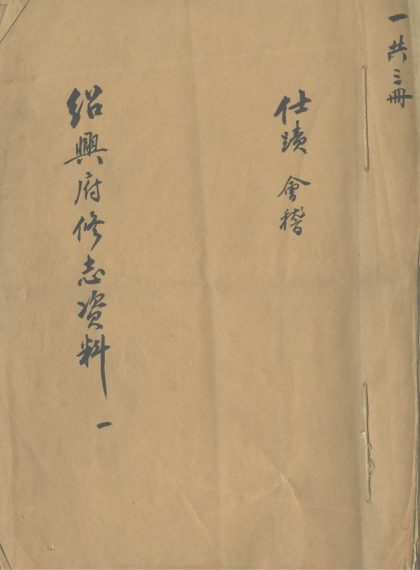 一共三冊
仕蹟 會稽
紹興府修志資料 一